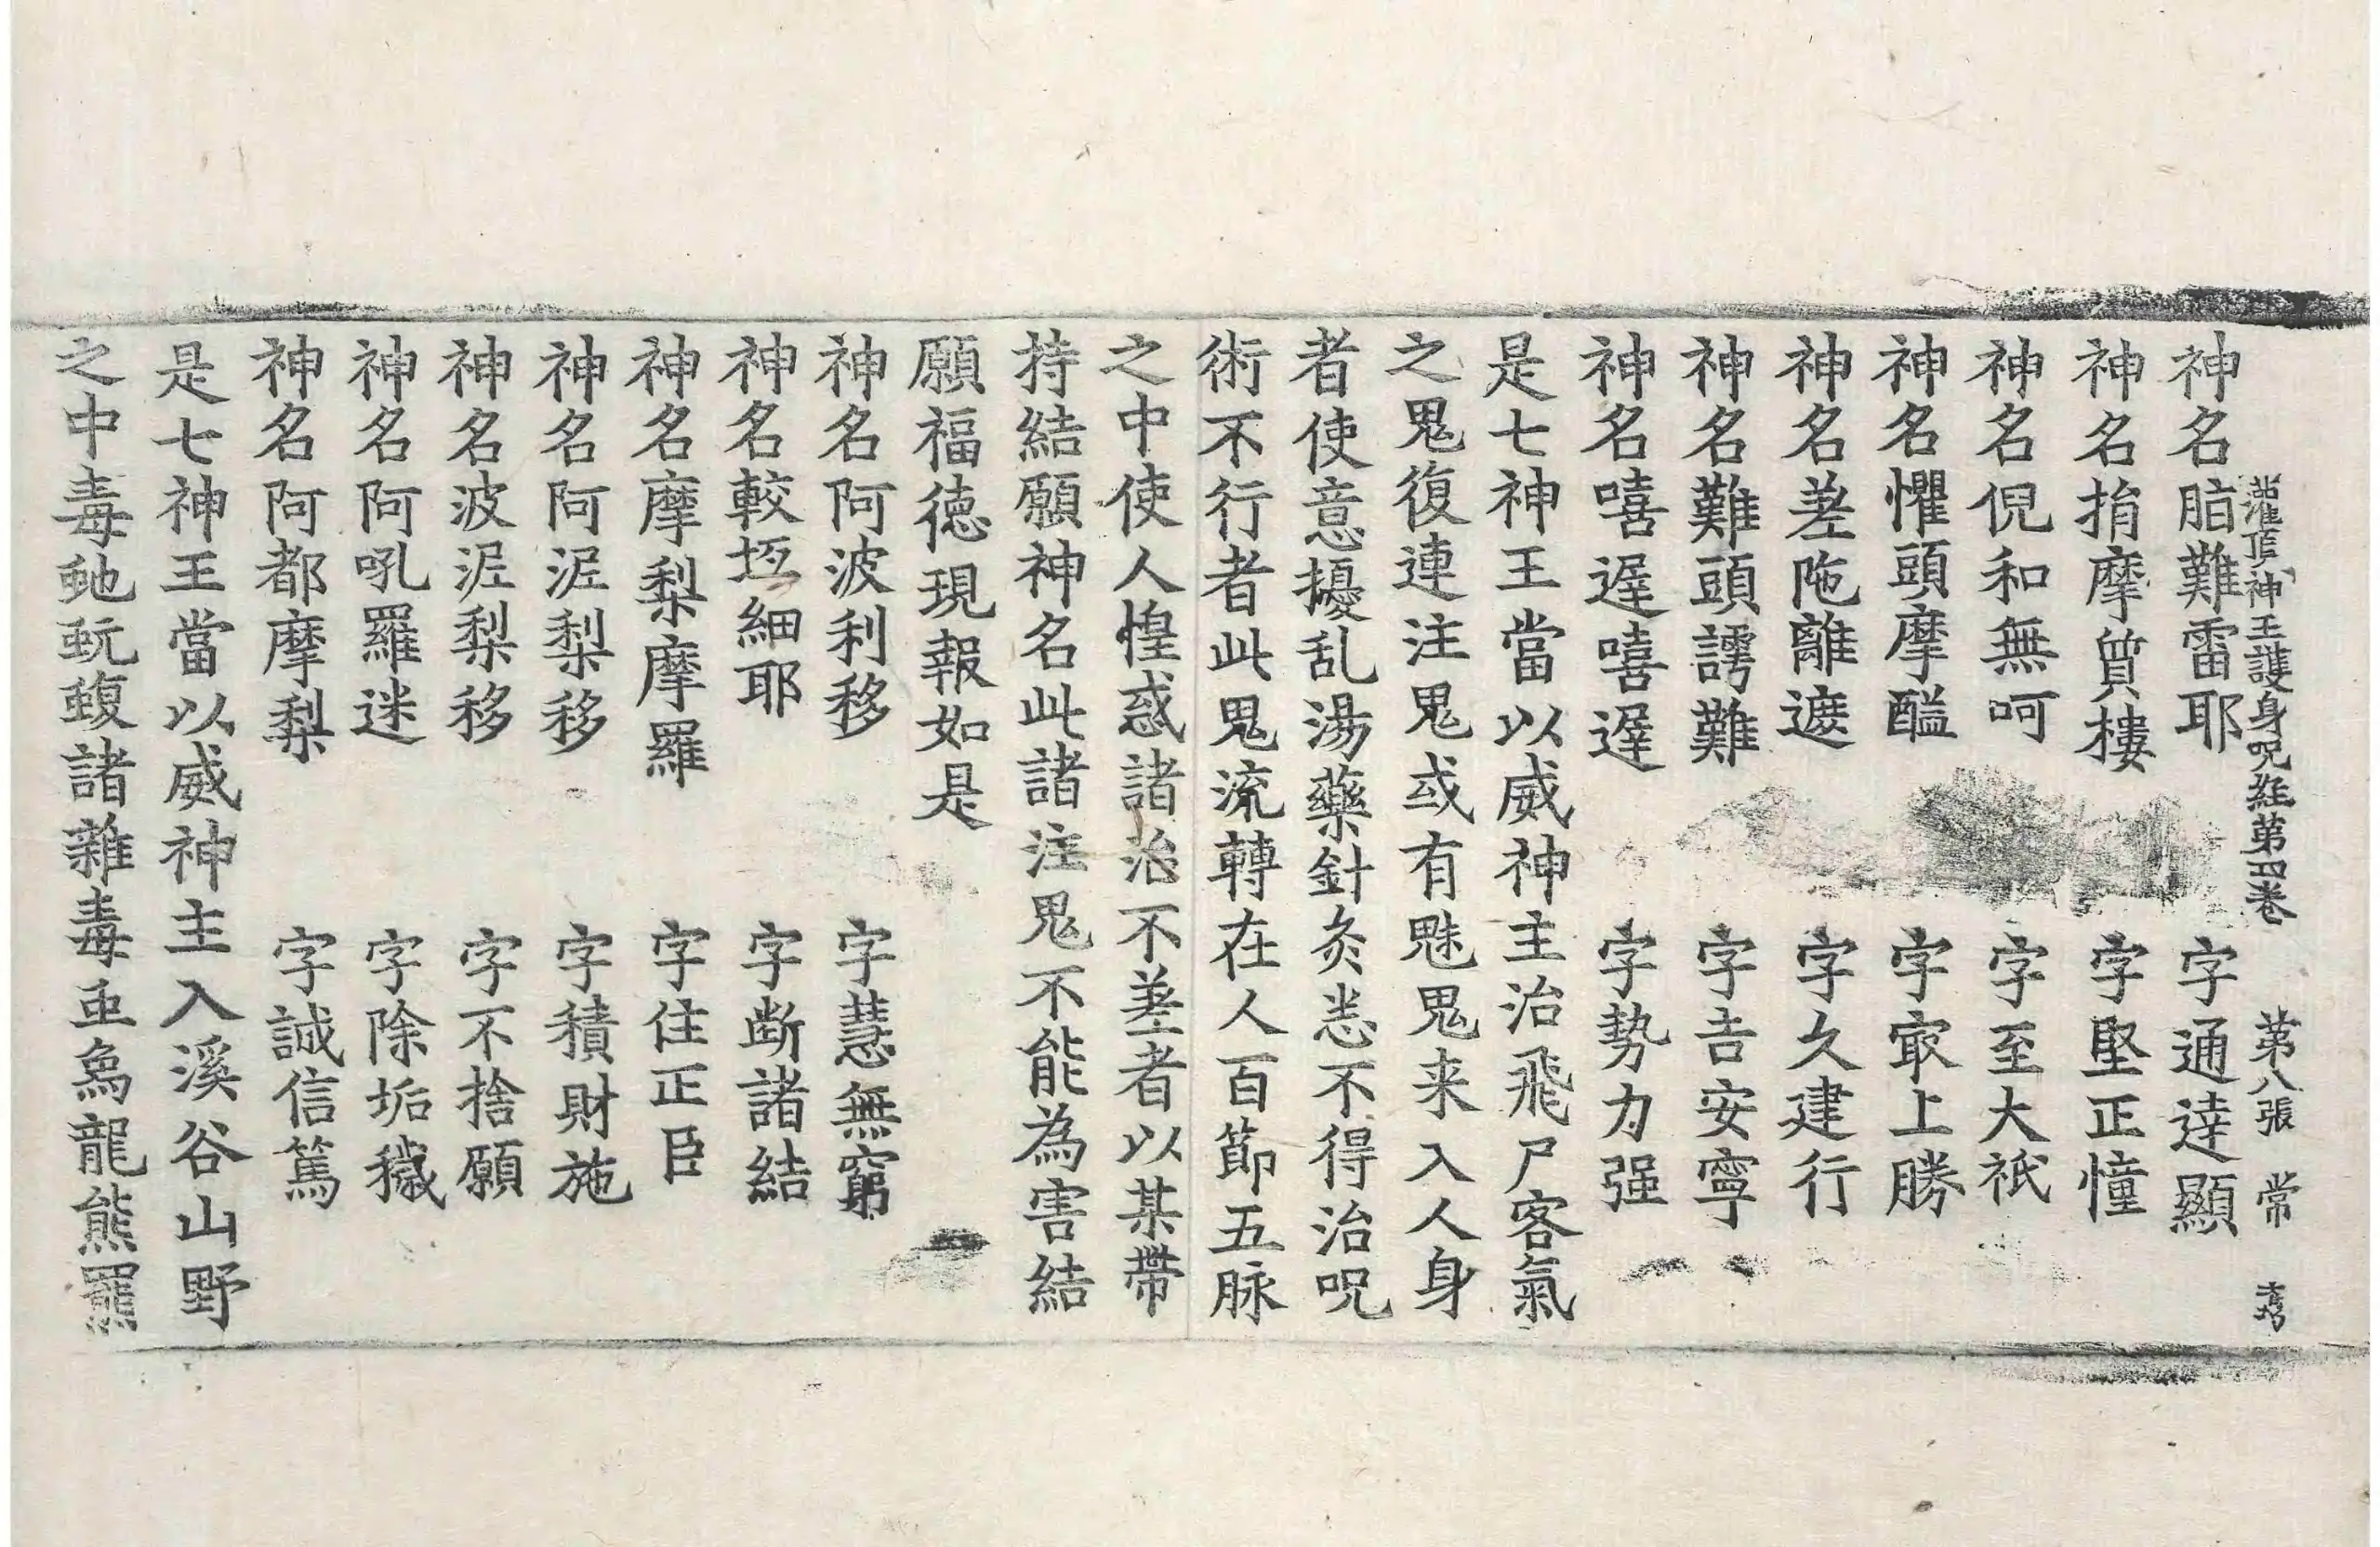 灌頂神王護身呪経第四卷 第八張 常
神名脂難雷耶 字通達顯
神名揹摩質樓 字堅正憧
神名倪和無呵 字至大祇
神名懼頭摩醯 字㝡上勝
神名差陁離遮 字久建行
神名難頭謣難 字吉安寧
神名嘻遅嘻遅 字勢力强
是七神王當以威神主治飛尸客氣
之鬼復連注鬼或有魅鬼来入人身
者使意擾乱湯藥針灸恙不得治呪
術不行者此鬼流轉在人百節五脉
之中使人惶惑諸治不差者以某帶
持結願神名此諸注鬼不能為害結
願福德現報如是
神名阿波利移 字慧無窮
神名較垣細耶 字断諸結
神名摩梨摩羅 字住正臣
神名阿泥梨移 字積財施
神名波泥梨移 字不捨願
神名阿吼羅迷 字除垢穢
神名阿都摩梨 字誠信篤
是七神王當以威神主入溪谷山野
之中毒虵蚖蝮諸雜毒虫為龍熊羆